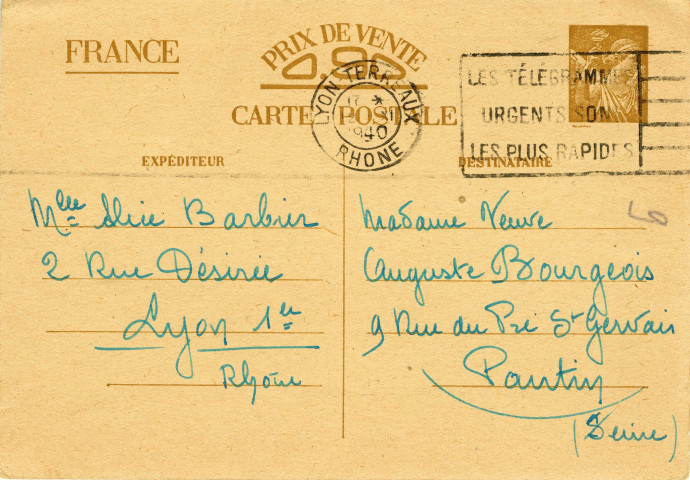 FRANCE
PRIX DE VENTE
0.80
CARTE POSTALE
LYON-TERREAUX
17 *
XI
1940
RHONE
LES TÉLÉGRAMMES
URGENTS SON
LES PLUS RAPIDES
EXPÉDITEUR
Mlle Alice Barbier
2 Rue Désirée
Lyon 1er
Rhône
DESTINATAIRE
Madame Veuve
Auguste Bourgeois
9 Rue du Pré St Gervais
Pantin
(Seine)